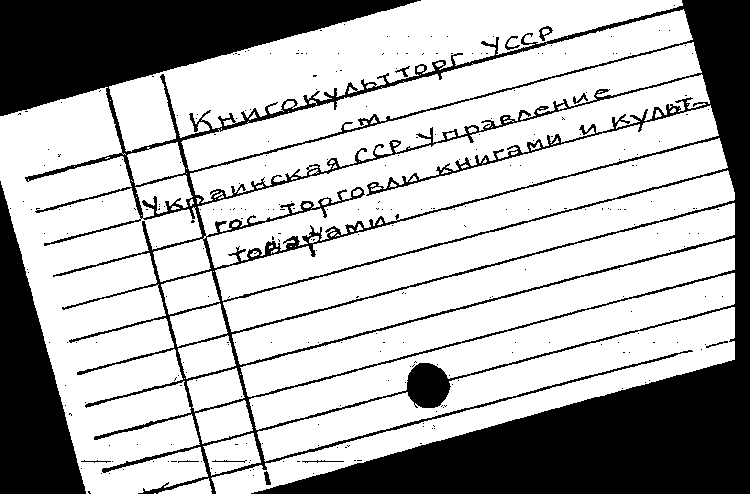 Книгокультторг УССР
см.
Украинская ССР. Управление
гос. торговли книгами и культ-
товарами.